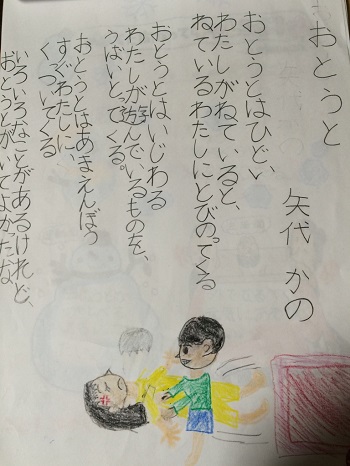 おとうと
矢代 かの
おとうとはひどい
わたしがねていると、
ねているわたしにとびのってくる
おとうとはいじわる
わたしが遊んでいるものを、
うばいとってくる。
おとうとはあまえんぼう
すぐわたしに、
くっついてくる
いろいろなことがあるけれど、
おとうとがいてよかったな